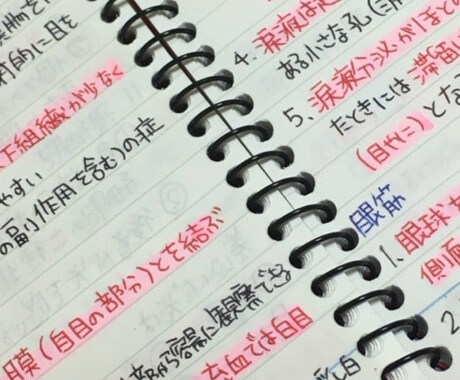 的に目を
下組織が少なく
やすい
の副作用を含む)の症
膜(白目の部分)とを結ぶ
容易に観察できる
充血では白目
4. 涙液は
ある小さな孔(
5. 涙液分泌がほとん
たときには滞留
(目やに)とな
眼筋
1. 眼球を
側面
2.